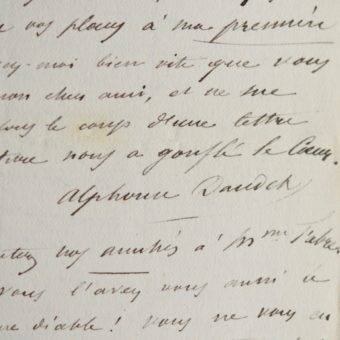 vos plans à ma première
-moi bien vite que vous
mon cher ami, et ne me
le coup d'une lettre
nous a gonflé le Coeur.
Alphonse Daudet
nos amitiés à Mme
vous l'avez vous aussi
diable! vous ne vous en